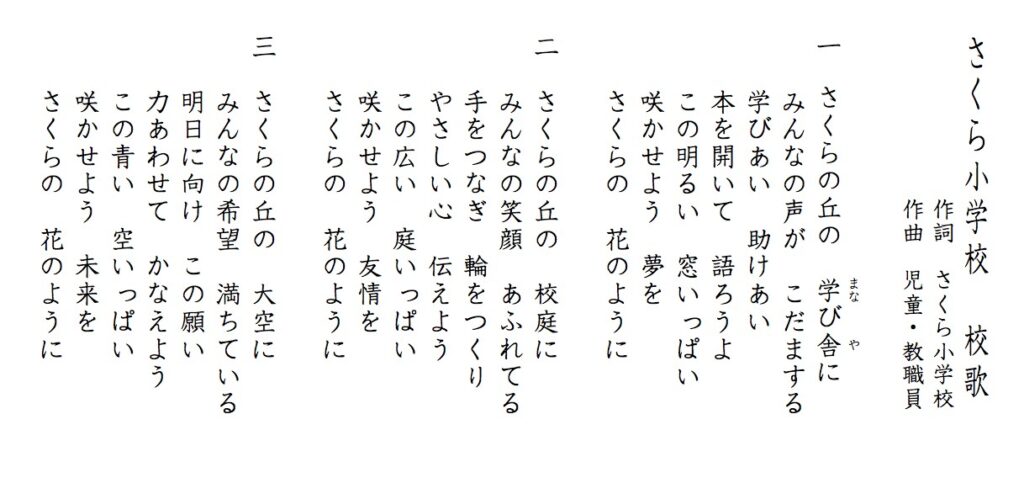 さくら小学校　校歌
作詞　さくら小学校
作曲　児童・教職員
一
さくらの丘の　学び舎に
まな　や
みんなの声が　こだまする
学びあい　助けあい
本を開いて　語ろうよ
この明るい　窓いっぱい
咲かせよう　夢を
さくらの　花のように
二
さくらの丘の　校庭に
みんなの笑顔　あふれてる
手をつなぎ　輪をつくり
やさしい心　伝えよう
この広い　庭いっぱい
咲かせよう　友情を
さくらの　花のように
三
さくらの丘の　大空に
みんなの希望　満ちている
明日に向け　この願い
力あわせて　かなえよう
この青い　空いっぱい
咲かせよう　未来を
さくらの　花のように